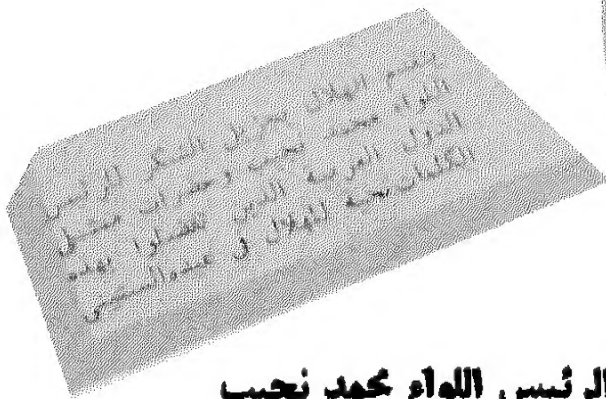 يتقدم الهلال بجزيل الشكر للرئيس
اللواء محمد نجيب وحضرات ممثلى
الدول العربية الذين تفضلوا بهذه
الكلمات تحية للهلال فى عيده الستينى
الرئيس اللواء محمد نجيب